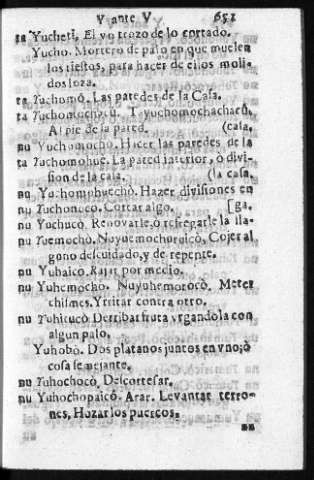 V ante V 651
ta Yucheti, El vo trozo de lo cortado.
Yucho. Mortero de palo en que muelen
los tiestos, para hacer de ellos moli-
dos loza.
ta Yuchomó. Las paredes de la Casa.
ta Yuchomochacù. T. yuchomochachacù,
Al pie de la pared. (casa,
nu Yuchomocho. Hacer las paredes de la
ta Yuchomohuè. La pared interior, ò divi-
sion de la casa. (la casa,
nu Yuchomohuechò. Hazer divisiones en
nu Yuchonucò. Cortar algo. [ga.
nu Yuchucò. Renovarle, ò refregarle la lla-
nu Yuemochò. Nuyuemochoroicò, Cojer al
gono descuidado, y de repente.
nu Yuhaico. Rajar por medio.
nu Yuhemocho. Nuyuhemorocò. Meter
chismes. Y tritar contra otro.
nu Yuhitucò Derribar fruta vrgandola con
algun palo.
Yuhobò. Dos platanos juntos en vno, ò
cosa semejante.
nu Yuhochocò, Descortesar.
nu Yuhochopaicò. Arar. Levantar terro-
nes, Hozar los puercos.
nu